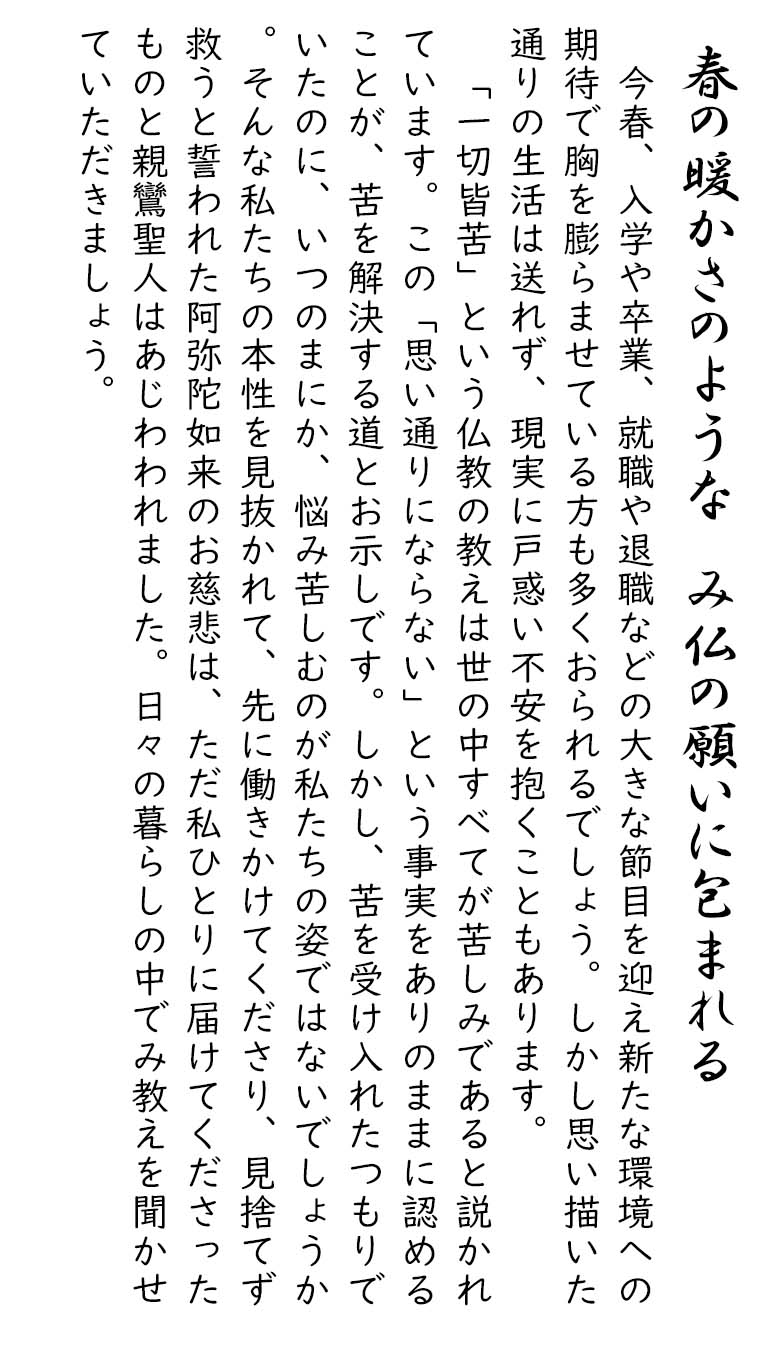 春の暖かさのような　み仏の願いに包まれる
　今春、入学や卒業、就職や退職などの大きな節目を迎え新たな環境への
期待で胸を膨らませている方も多くおられるでしょう。しかし思い描いた
通りの生活は送れず、現実に戸惑い不安を抱くこともあります。
　「一切皆苦」という仏教の教えは世の中すべてが苦しみであると説かれ
ています。この「思い通りにならない」という事実をありのままに認める
ことが、苦を解決する道とお示しです。しかし、苦を受け入れたつもりで
いたのに、いつのまにか、悩み苦しむのが私たちの姿ではないでしょうか
。そんな私たちの本性を見抜かれて、先に働きかけてくださり、見捨てず
救うと誓われた阿弥陀如来のお慈悲は、ただ私ひとりに届けてくださった
ものと親鸞聖人はあじわわれました。日々の暮らしの中でみ教えを聞かせ
ていただきましょう。